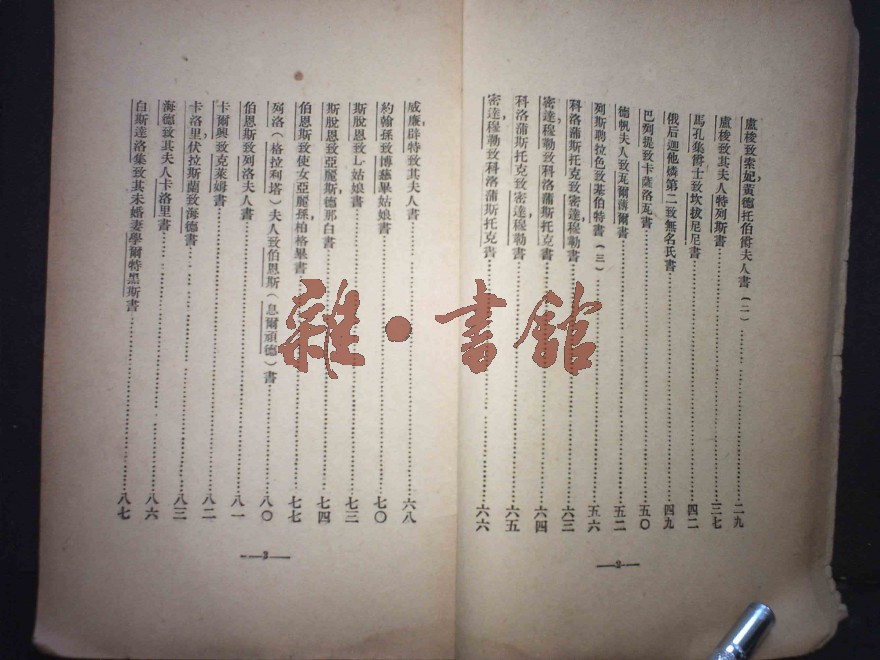 盧梭致索妃，黃德托伯爵夫人書（二）……二九
盧梭致其夫人特列斯書……三七
馬孔集爵士致坎拔尼尼書……四二
俄后迦他憐第二致無名氏書……四九
巴列提致卡薩洛瓦書……五〇
德帆夫人致瓦爾薄爾書……五二
列斯聘拉色致基伯特書（三）……五六
科洛蒲斯托克致密達，穆勒書……六三
密達，穆勒致科洛蒲斯托克書……六四
科洛蒲斯托克致密達，穆勒書……六五
密達，穆勒致科洛蒲斯托克書……六六
—2—
威廉，辟特致其夫人書……六八
約翰孫致博慈畢姑娘書……七〇
斯脫恩致L姑娘書……七三
斯脫恩致亞麗斯，德那白書……七四
伯恩斯致使女亞麗孫，柏格畢書……七七
列洛（格拉利塔）夫人致伯恩斯（息爾頑德）書……八〇
伯恩斯致列洛夫人書……八一
卡爾興致克萊姆書……八二
卡洛里，伏拉斯蘭致海德書……八三
海德致其夫人卡洛里書……八六
白斯達洛集致其未婚妻學爾特黑斯書……八七
—3—
雜·書館